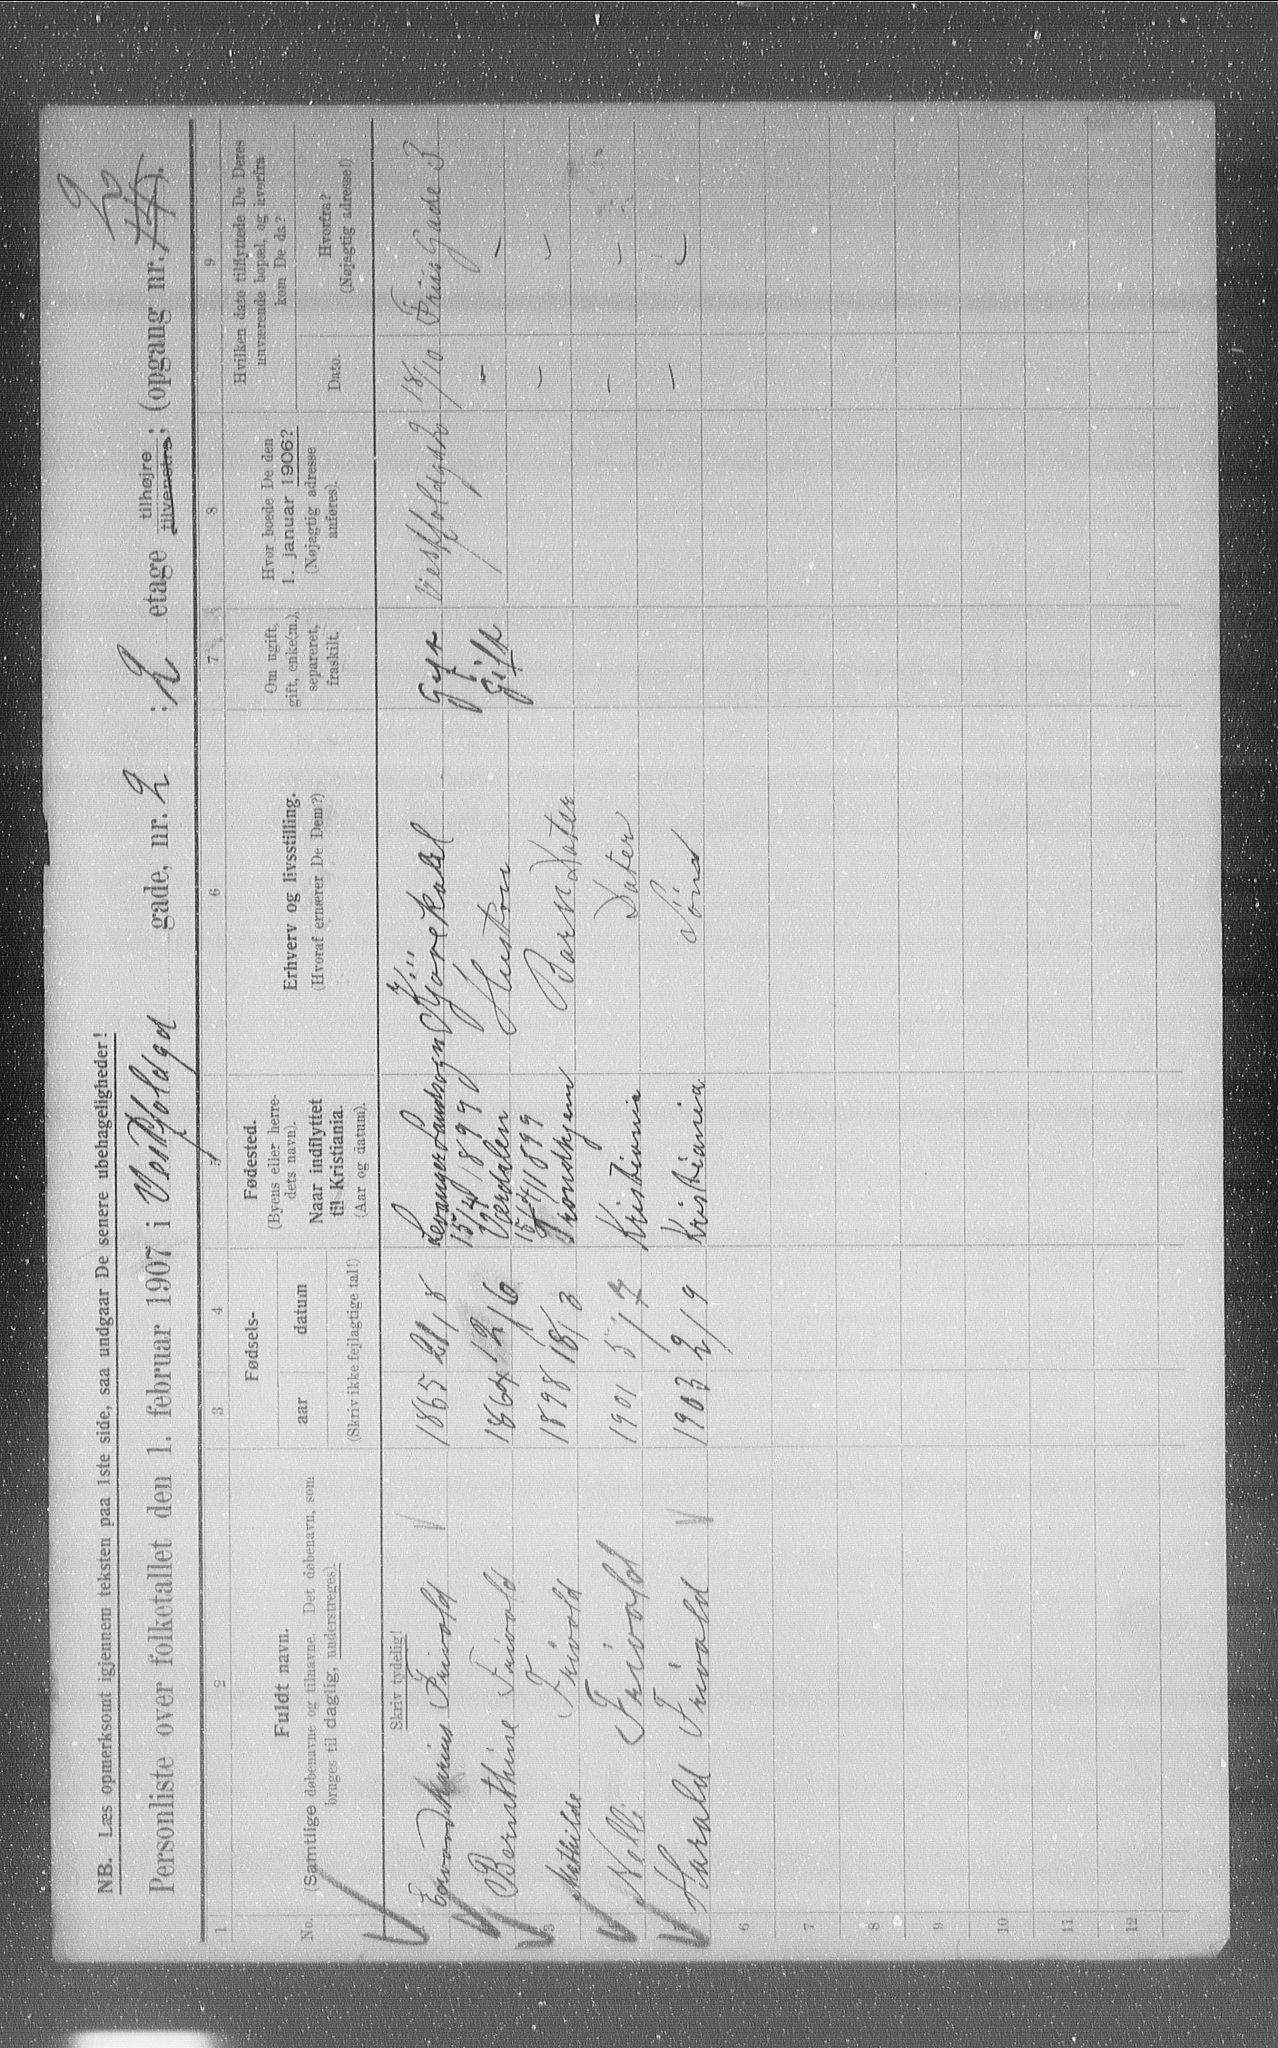 NB. Læs opmerksomt igjennem teksten paa 1ste side, saa undgaar De senere ubehageligheder!
Personliste over folketallet den 1. februar 1907 i Vestfoldgd gade, nr. 2 ; 2 etage tilhøjre tilvenstre; (opgang nr. 2 ).
1 2 3 4 5 6 7 8 9
No.
Fuldt navn.
(Samtlige døbenavne og tilnavne. Det døbenavn, som
bruges til daglig, understreges).
Fødsels-
aar datum
(Skriv ikke fejlagtige tal!)
Fødested.
(Byens eller herre-
dets navn).
Naar indflyttet
til Kristiania.
(Aar og datum).
Erhverv og livsstilling.
(Hvoraf ernærer De Dem?)
Om ugift,
gift, enke(m.),
separeret,
fraskilt.
Hvor boede De den
1. januar 1906?
(Nøjagtig adresse
anføres).
Hvilken dato tilflyttede De Deres
nuværende bopæl, og hvorfra
kom De da?
Dato.
Hvorfra?
(Nøjagtig adresse!)
Skriv tydelig!
Marius Frivold 1865 21/8 Levanger Landsogn 15/4 1899 Gift Vestfoldgd 2 18/10 Friis Gade 3
Bernthine Frivold 1864 12/6 Værdalen 15/4 1899 Hustru Gift - -
3 Mathilde Frivold 1898 18/3 Trondhjem Barn Dater - -
Nelli Frivold 1901 5/7 Kristiania Dater - -
Harald Frivold 1903 2/9 Kristiania Sønn - -
6
7
8
9
10
11
12